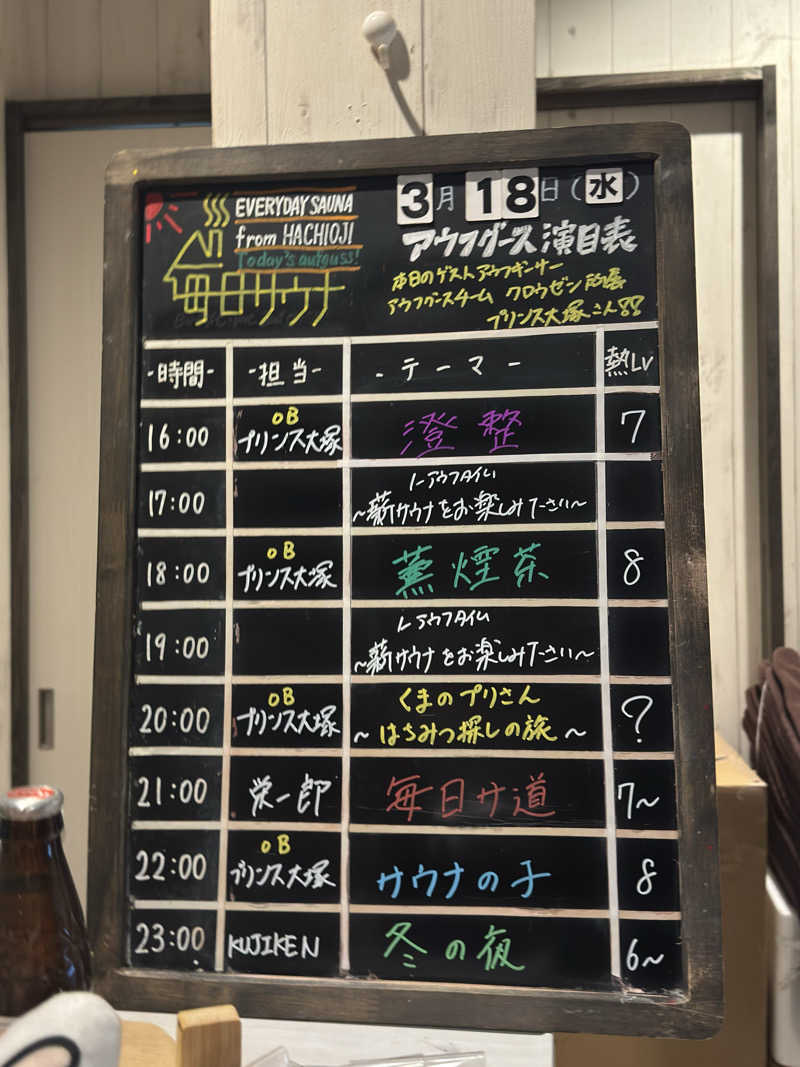 EVERYDAY SAUNA
from HACHIOJI
Today's aufguss!
毎日サウナ
3月18日(水)
アウフグース演目表
本日のゲストアウフギーサー
アウフグースチーム クロウゼン所属
プリンス大塚さん!!
-時間- -担当- -テーマ- 熱LV
16:00 OB プリンス大塚 澄整 7
17:00 ノーアウフタイム
~薪サウナをお楽しみ下さい~
18:00 OB プリンス大塚 薫煙茶 8
19:00 ノーアウフタイム
~薪サウナをお楽しみ下さい~
20:00 OB プリンス大塚 くまのプリさん ?
~はちみつ探しの旅~
21:00 栄一郎 毎日サ道 7~
22:00 OB プリンス大塚 サウナの子 8
23:00 KUJIKEN 冬の夜 6~